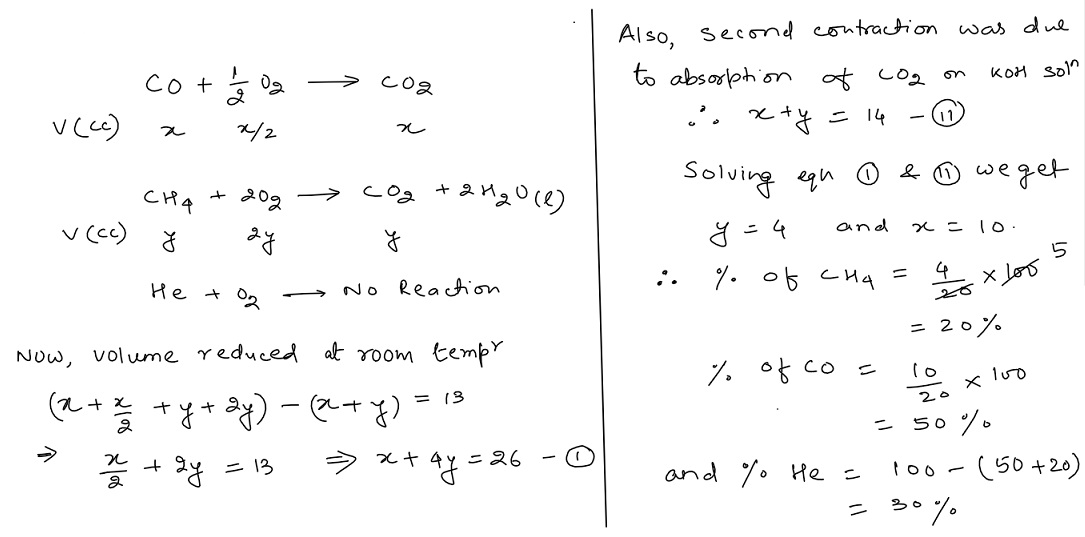 CO + 1/2 O₂ ⟶ CO₂
V(cc) x x/2 x
CH₄ + 2O₂ ⟶ CO₂ + 2H₂O(l)
V(cc) y 2y y
He + O₂ ⟶ No Reaction
Now, volume reduced at room tempʳ
(x + x/2 + y + 2y) - (x + y) = 13
⇒ x/2 + 2y = 13 ⇒ x + 4y = 26 - ①
Also, second contraction was due
to absorption of CO₂ on KOH solⁿ
∴ x + y = 14 - ⑪
Solving eqn ① & ⑪ we get
y = 4 and x = 10.
∴ % of CH₄ = 4/20 × 100 5
= 20%
% of CO = 10/20 × 100
= 50%
and % He = 100 - (50 + 20)
= 30%